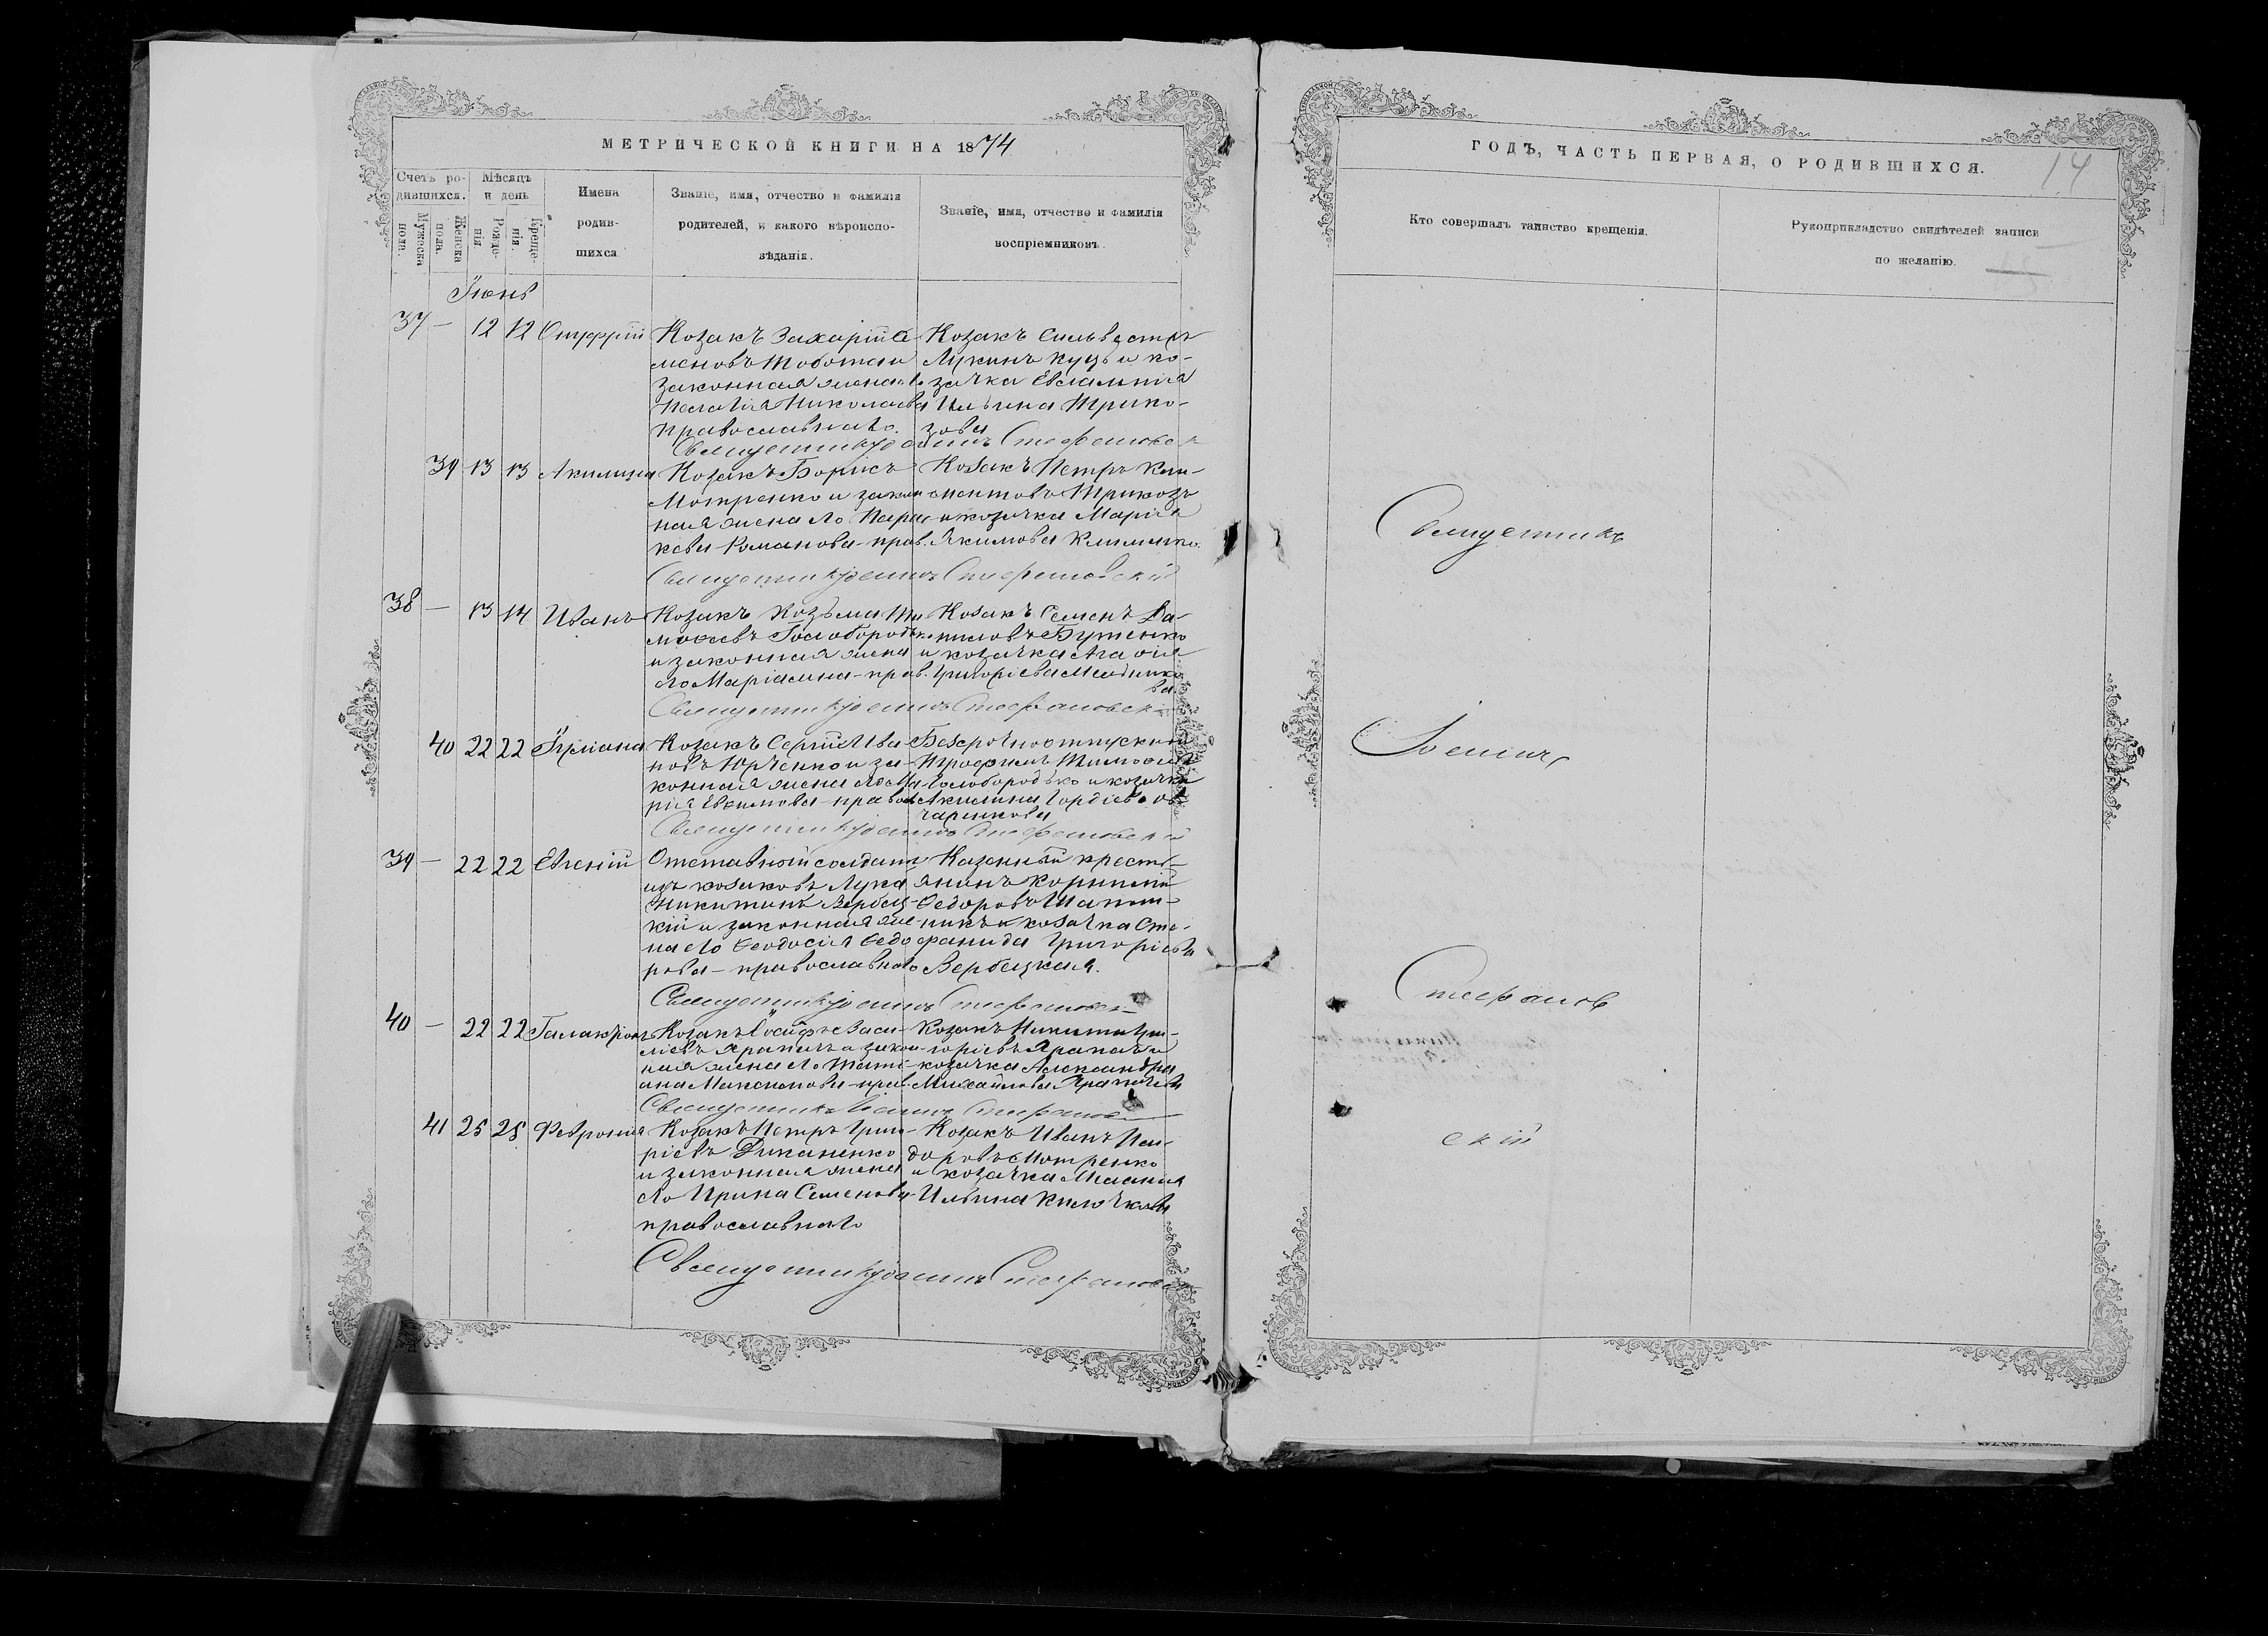 МЕТРИЧЕСКОЙ КНИГИ НА 1874
Счетъ ро-
дившихся.
Мужеска
пола.
Женска
пола.
Мѣсяцъ
и день
Рожде-
нія
Креще-
нія.
Имена
родив-
шихся
Званіе, имя, отчество и фамилія
родителей, и какого вѣроиспо-
вѣданія.
Званіе, имя, отчество и фамилія
воспріемниковъ.
Іюнь
37 — 12 12 Онуфрій
Козакъ Захарій Се-
меновъ
законная жена его
Пелагія Николаева
православнаго.
Козакъ Сильвестръ
Лукинъ Куць и ко-
зачка Евлампія
Ильина Трико-
зова
Священникъ Іоаннъ Стефановск
39 13 13 Акилина
Козакъ Борисъ
Мотренко и закон
ная жена его Парас
кева Романова - прав.
Козакъ Петръ Кли-
ментовъ Трикозъ
и козачка Марія
Якимова Клименко.
Священникъ Іоаннъ Стефановскій
38 — 13 14 Иванъ
Козакъ Козьма Ти
моѳеевъ Голобородько
и законная жена
его Маріамна - прав.
Козакъ Семенъ Да-
ниловъ Бутенко
и козачка Агафія
Григорієва Мельнико
ва.
Священникъ Іоаннъ Стефановскі
40 22 22 Іуліана
Козакъ Сергій Ива
новъ Юрченко и за-
конная жена его Ма
рія Евѳимова - правос
Безсрочноотпускной
Трофимъ Тимоѳеевъ
Голобородько и козачка
Акилина Гордіева Ов
чаренкова
Священникъ Іоаннъ Стефановскій
39 — 22 22 Евгеній
Отставной солдатъ
изъ козаковъ Лука
Никитинъ Вербец-
кій и законная же-
на его Ѳеодосія Ѳедо
рова - православнаго
Казенный кресть-
янинъ Корнилій
Ѳедоровъ Шапош-
никъ и козачка Сте-
фанида Григорієва
Вербецкая.
Священникъ Іоаннъ Стефановскі
40 — 22 22 Галактіонъ
Козакъ Іосифъ Васи-
лієвъ Ярапачъ и закон
ная жена его Тати-
ана Максимова - прав.
Козакъ Никита Гри-
горієвъ Ярапачъ и
козачка Александра
Михайлова Ярапачева
Священникъ Іоаннъ Стефановс
41 25 25 Февронія
Козакъ Петръ Григо-
рієвъ Диканенко
и законная жена
его Ирина Семенова
православнаго
Козакъ Иванъ Иси-
доровъ Мотренко
и козачка Меланія
Ильина Клочкова
Священникъ Іоаннъ Стефановск
ГОДЪ, ЧАСТЬ ПЕРВАЯ, О РОДИВШИХСЯ.
14
Кто совершалъ таинство крещенія.
Рукоприкладство свидѣтелей записи
по желанію.
Священникъ
Іоаннъ
Стефанов
скій